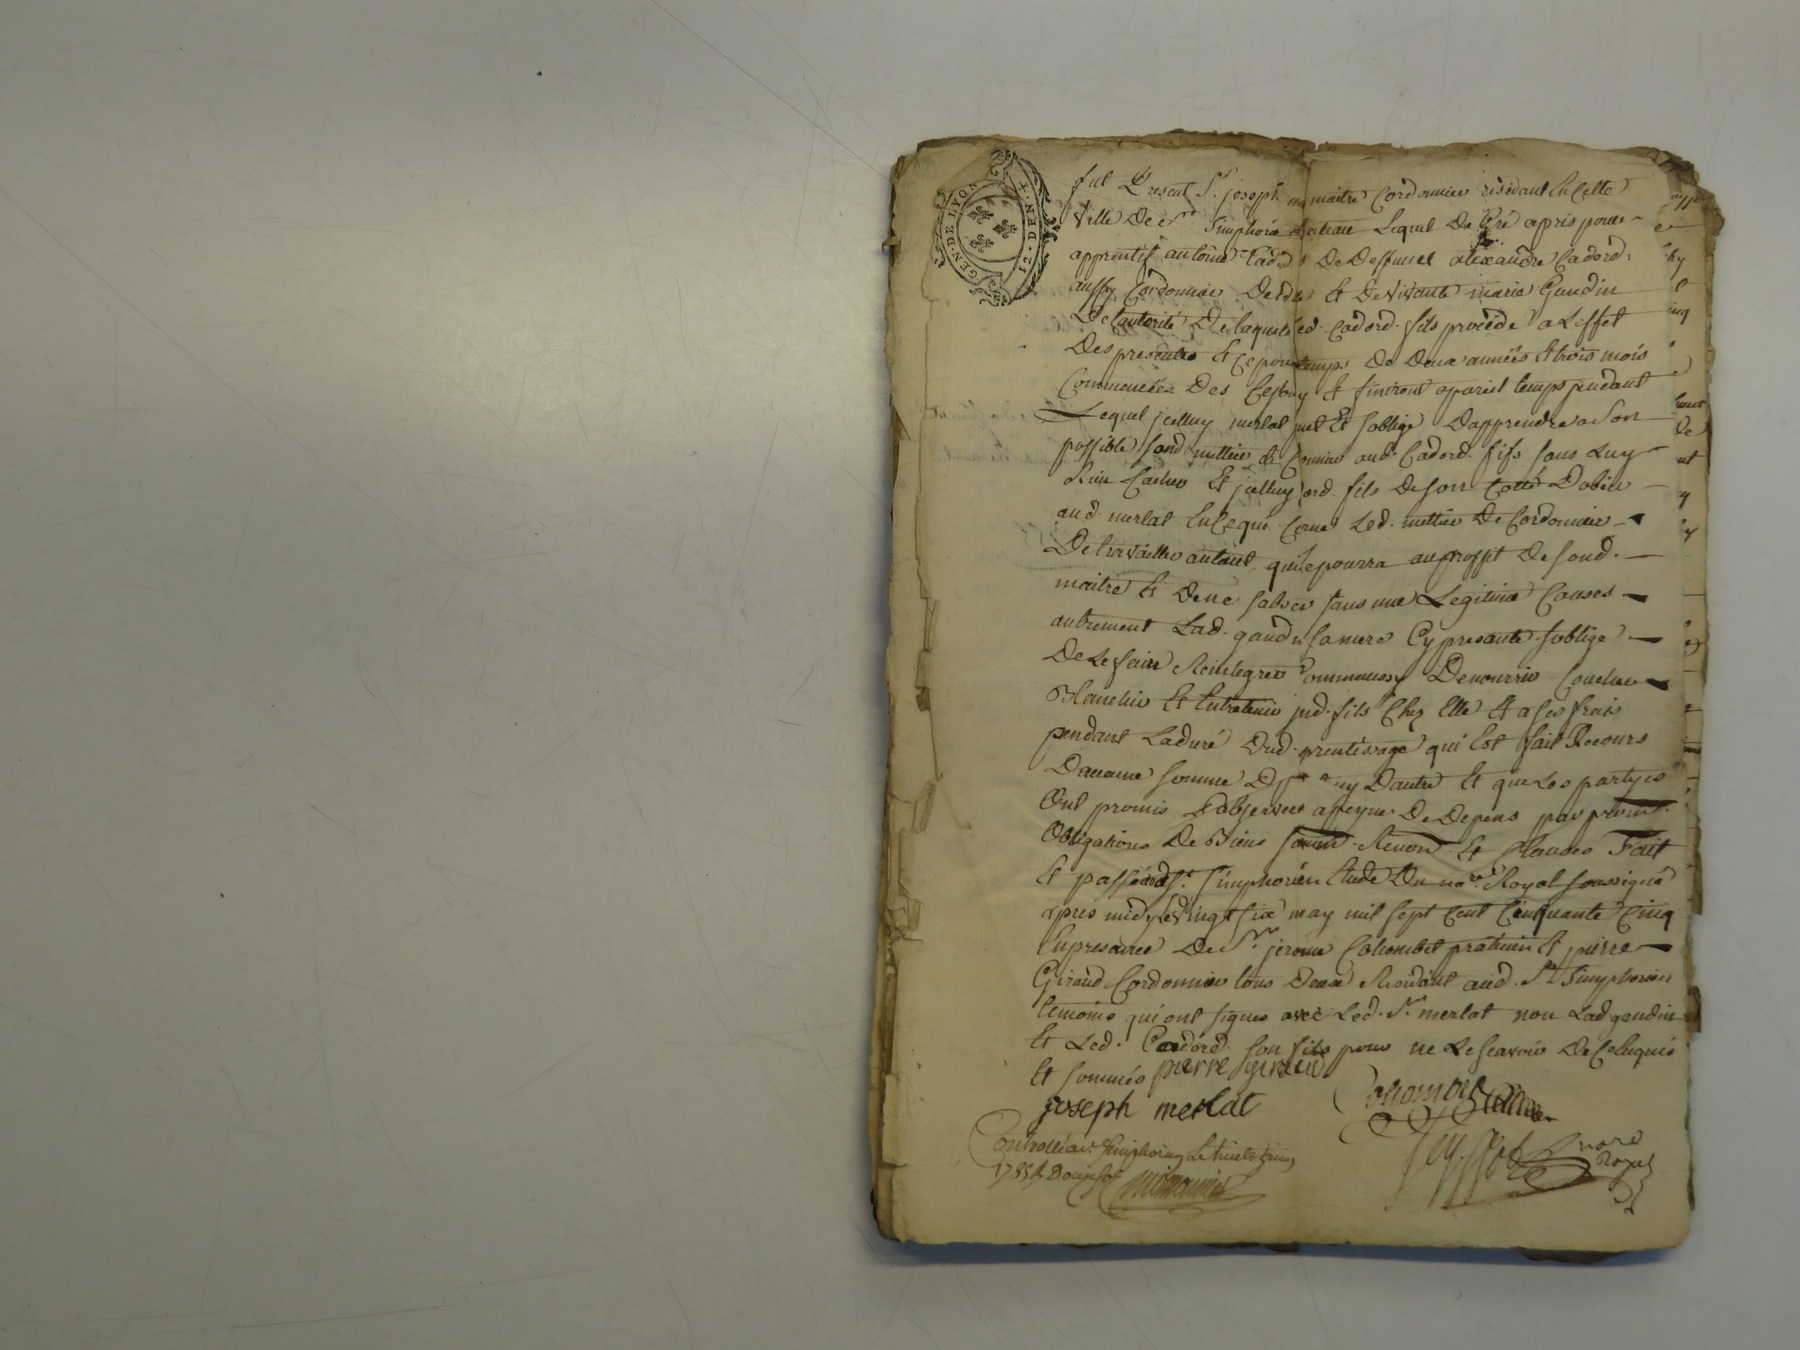 GEN · DE · LYON
12 · DEN · T
fut Présent Sr. joseph maitre Cordonnier résidant En Cette
Ville De st Simphorien Lequel De Gré apris pour
apprentif antoine Cadord De Deffunct alexandre Cadord
aussy Cordonnier Et De Vivante marie Gaudin
De Lautorité De laquelle led. Cadord fils procède a Leffet
Des presentes Et Ce pour temps De Deux années Et trois mois
Commencées Des Cejourdhuy Et finiront a pareil temps pendant
Lequel jcelluy merlat promet Et Soblige Dapprendre a Son
possible Sond mettier de aud. Cadord fils Sans Luy
Rien Cacher Et jcelluy Cadord. fils De Son Cotté Dobéir
aud. merlat En Ce qui Conc Led. mettier De Cordonnier
De travailler autant quil pourra au proffit De Sond.
maitre Et De ne Sabsenter Sans une Legitime Causes
autrement Lad. gaudin Sa mere Cy presante Soblige
De Le faire Reintegrer Comme aussy De nourrir Coucher
Blanchir Et Entretenir sond. fils Chez Elle Et a Ses frais
pendant La duré Dud. aprentissage qui Est fait
Daucune Somme Dautre Et que Les partyes
Ont promis Dobserver a peyne De Depens par prom.
Obligations De Biens Soum. Renon. Et Clauses Fait
Et passé aud St. Simphorien Etude Du nore. Royal Soussigné
apres midy Le Vingt Six may mil Sept Cent Cinquante Cinq
En presance De Sr. jerome Cohombet praticien Et pierre
Giraud Cordonnier tous Deux Residant aud. St Simphorien
temoins qui ont Signé avec Led. Sr. merlat non Lad gaudin
Et Led. Cadord. Son fils pour ne Le Scavoir De Ce Enquis
Et Sommés pierre giraud
joseph merlat Cohombet
Controllé a St. Simphorien Le trente may
1755 Douze Sols
nore
Royal